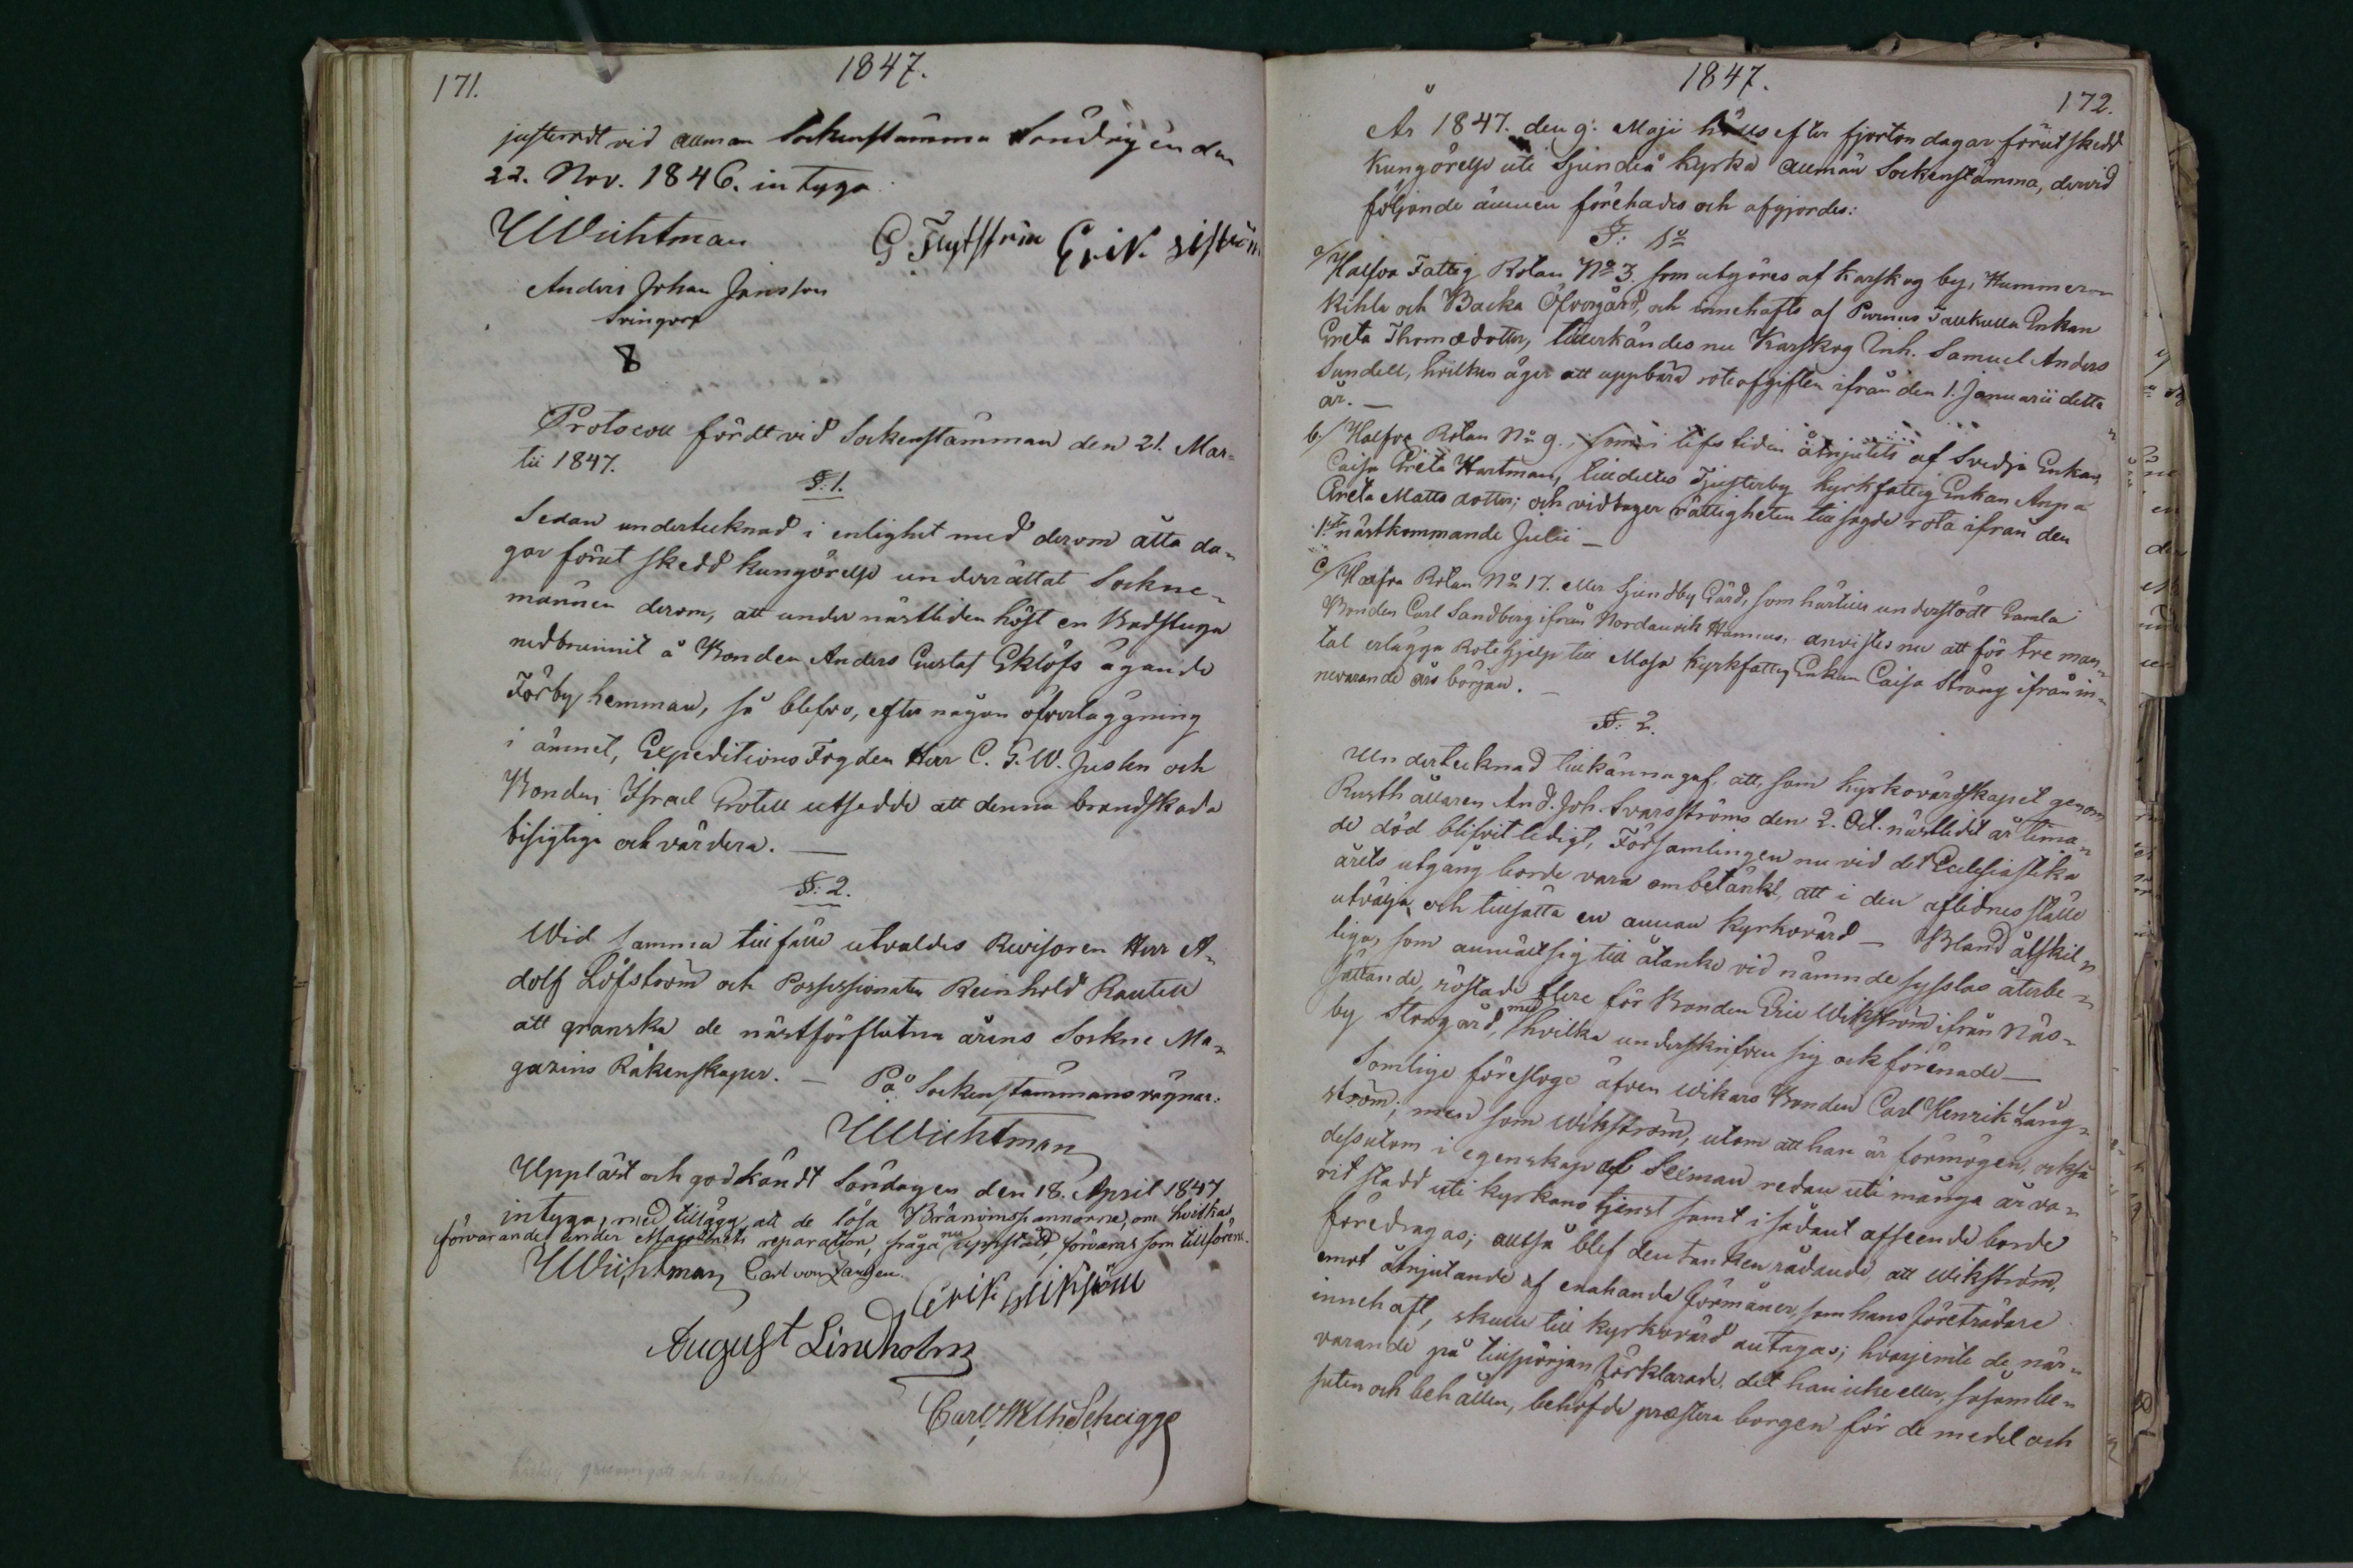 171.
1847.
justeradt vid allmän Sockenstämma Söndagen den
22. Nov. 1846. intyga
Wichtman
G Flytström Erik
Anders Johan Jansson
Svingorp
Protocoll fördt vid Sockenstämman den 21. Mar=
tii 1847.
§: 1.
Sedan undertecknad i enlighet med derom åtta da=
gar förut skedd kungörelse underrättat Sockne=
männen derom, att under nästliden höst en Badstuga
nedbrunnit å Bonden Anders Gustaf Eklöfs ägande
Förby hemman, så blefvo, efter någon öfverläggning
i ämnet, Expeditions Fogden Herr C. G. W. Juslen och
Bonden Israel Grotell utsedde att denna brandskada
besigtiga och värdera. —
§: 2.
Wid samma tillfälle utvaldes Revisoren Herr A=
dolf Löfström och Possessionaten Reinhold Rautell
att granska de nästförflutna årens Sockne Ma=
gazins Räkenskaper. — På Sockenstämmans vägnar:
Wichtman
Uppläst och godkändt Söndagen den 18. April 1847
intyga, med tillägg, att de lösa Bränvinspannorna, om hvilkas
förvarande under Magasinets reparation, fråga nu uppstått, förvaras som tillförene.
Wichtman Carl von
Erik Wikström
August Lindholm
Carl Wilh Schaigge
1847.
172.
År 1847. den 9. Maji hölls efter fjorton dagar förut skedd
Kungörelse uti Sjundeå Kyrka allmän Sockenstämma, dervid
följande ämnen förehades och afgjordes:
§: 1o
a/ Halfva Fattig Rotan No 3. som utgöres af Karskog by, Hummer=
kihla och Backa Öfvergård, och innehafts af Purnus Jallkulla Enkan
Greta Thomædotter, tillerkändes nu Karskog Inh. Samuel Anders
Sundell, hvilken äger att uppbära roteafgiften ifrån den 1. Januarii detta
år. —
b/ Halfva Rotan No 9. som i lifstiden åtnjutits af Svedja Enkan
Caisa Greta Hartman, tilldeltes Tjusterby kyrkfattig Enkan Anna
Greta Matts dotter; och vidtager rättigheten till sagde rota ifrån den
1ste nästkommande Julii —
c/ Halfva Rotan No 17. eller Sjundby Gård, som härtills understödt Gamla
Bonden Carl Sandberg ifrån Nordanvik Hannus, anvistes nu att för tre man=
tal erlägga Rotehjelp till Masa Kyrkfattig Enkan Caisa Strång ifrån in=
nevarande års början. —
§: 2.
Undertecknad tillkännagaf, att, som Kyrkovärdskapet genom
Rusthållaren And. Joh. Svarsströms den 2. Oct. nästledit år tima=
de död blifvit ledigt, Församlingen nu vid det Ecclesiastika
årets utgång borde vara ombetänkt, att i den aflidnes ställe
utvälja och tillsätta en annan Kyrkovärd — Bland åtskil=
liga, som anmält sig till åtanke vid nämnde sysslas återbe=
sättande, röstade flere för Bonden Eric Wikström ifrån Näs=
by Storgård, med hvilka underskrifven sig ock förenade —
Somlige föresloge äfven Wikars Bonden Carl Henrik Lång=
ström; men som Wikström, utom att han är förmögen, också
dessutom i egenskap af Sexman redan uti många år va=
rit stadd uti kyrkans tjenst samt i sådant afseende borde
föredragas; alltså blef den tanken rådande, att Wikström,
emot åtnjutande af enahanda förmåner, som hans företrädare
innehaft, skulle till Kyrkovärd antagas; hvarjemte de när=
varande på tillspörjan förklarade, det han icke eller, såsom be=
suten och behållen, behöfde præstera borgen för de medel och